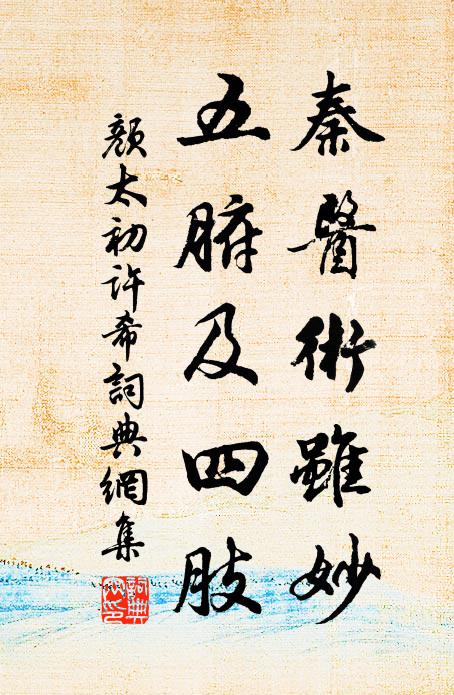 秦醫術雖妙
五腑及四肢
顏太初許希詞典網集